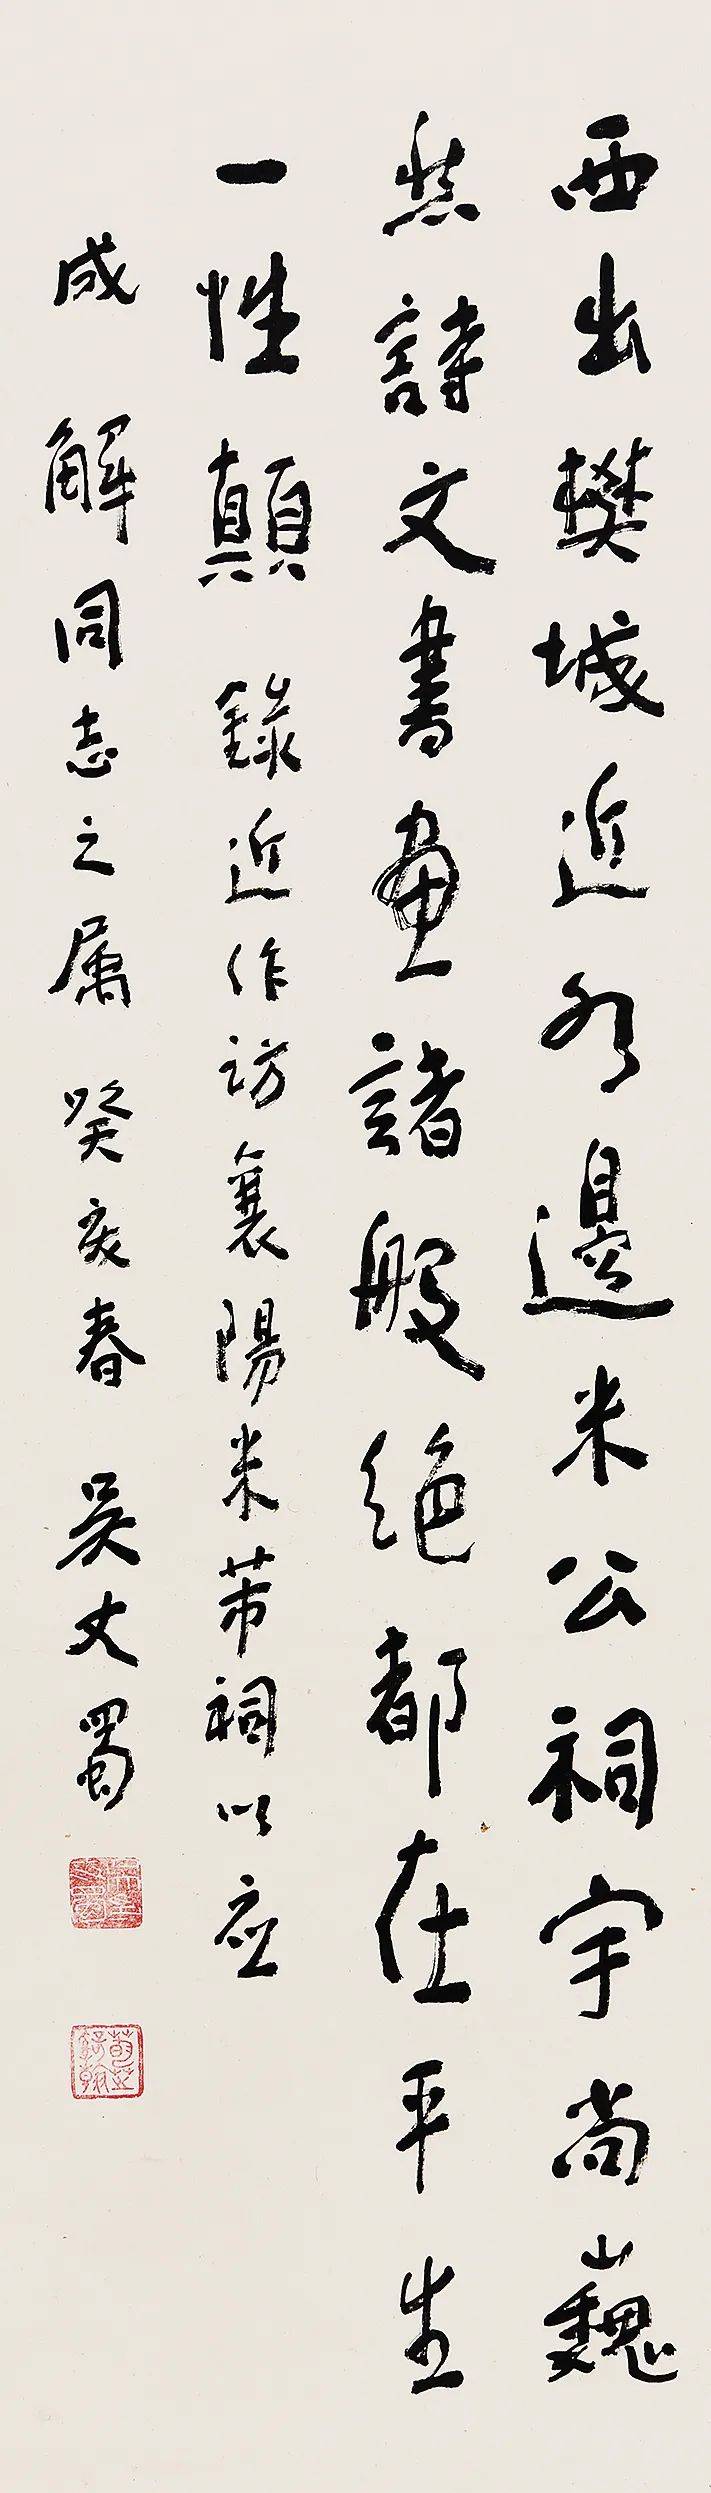 西出樊城近水邊米公祠宇尚巍
然詩文書畫諸般絕都在平生
一性顛 錄近作访襄陽米芾祠以应
成解同志之属 癸亥春 吴丈蜀